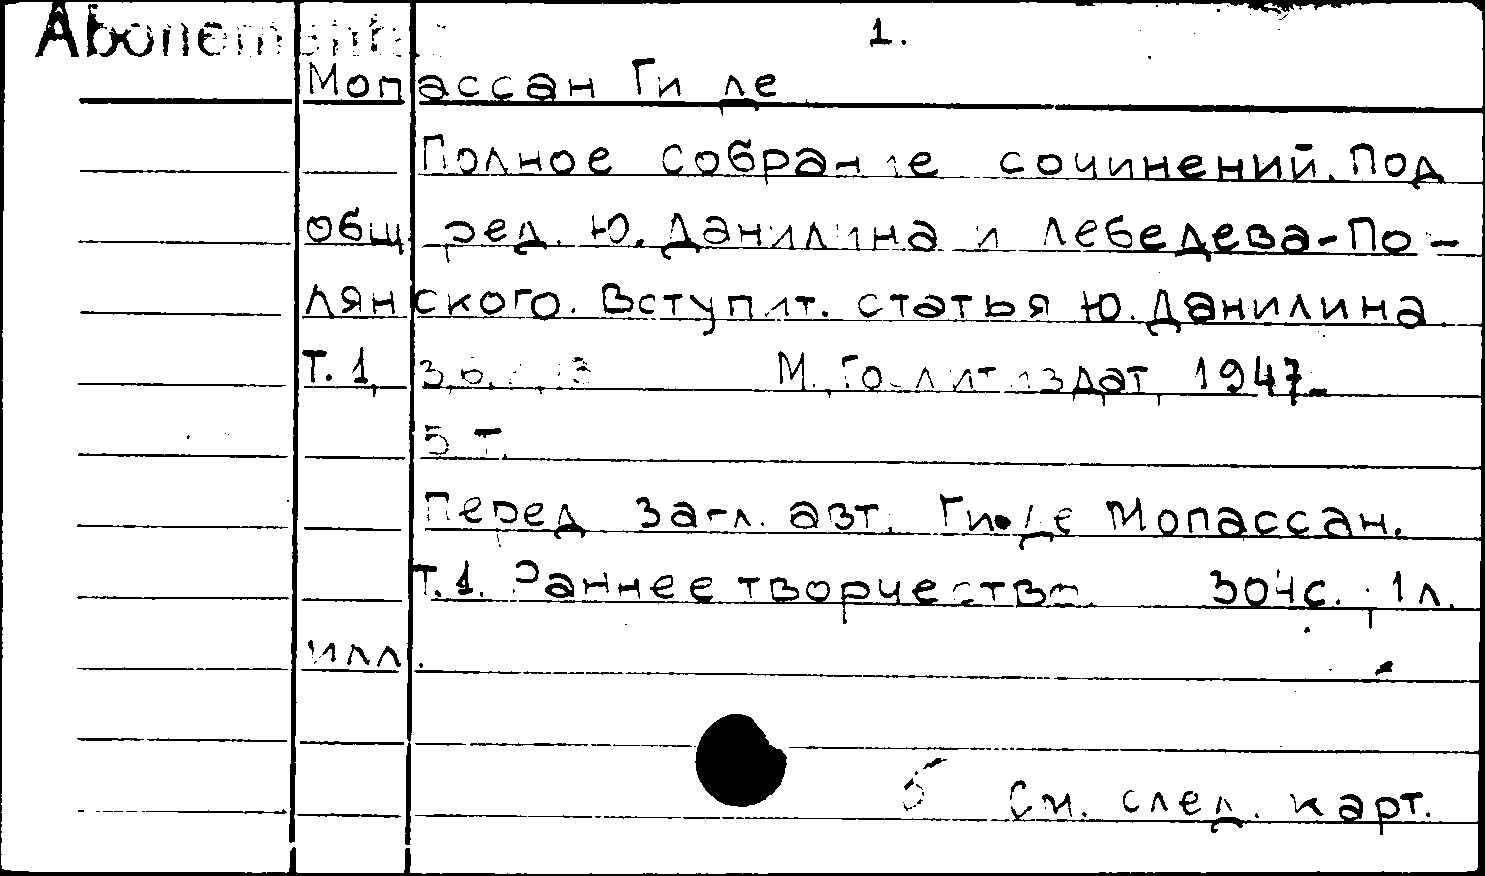 Abonements 1.
Мопассан Ги де
Полное собрание сочинений. Под
общ. ред. Ю. Данилина и Лебедева-По-
лянского. Вступит. статья Ю. Данилина.
Т. 1, 3, 6, 13 М., Гослитиздат, 1947-
5 т.
Перед загл. авт. Ги де Мопассан.
Т. 1. Раннее творчество. 304с. 1 л.
илл.
См. след. карт.